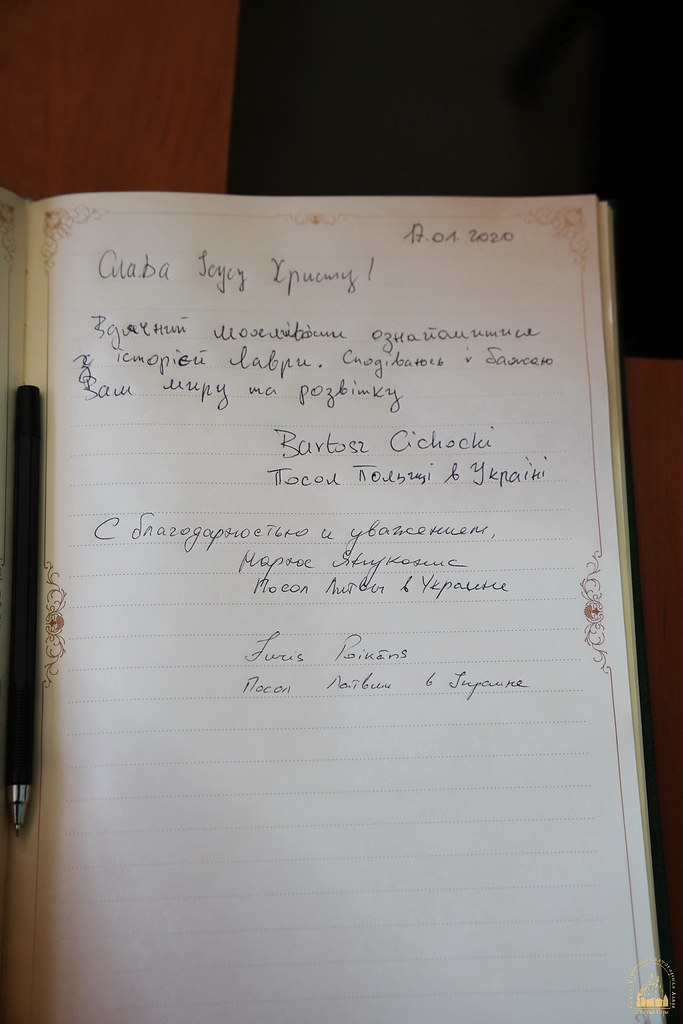 17.01.2020
Слава Ісусу Христу!
Вдячний можливости ознайомитися
з історієй Лаври. Сподіваюсь і бажаю
Вам миру та розвітку
Bartosz Cichocki
Посол Польщі в Україні
С благодарностью и уважением,
Марюс Януконис
Посол Литвы в Украине
Juris Poikāns
Посол Латвии в Украине